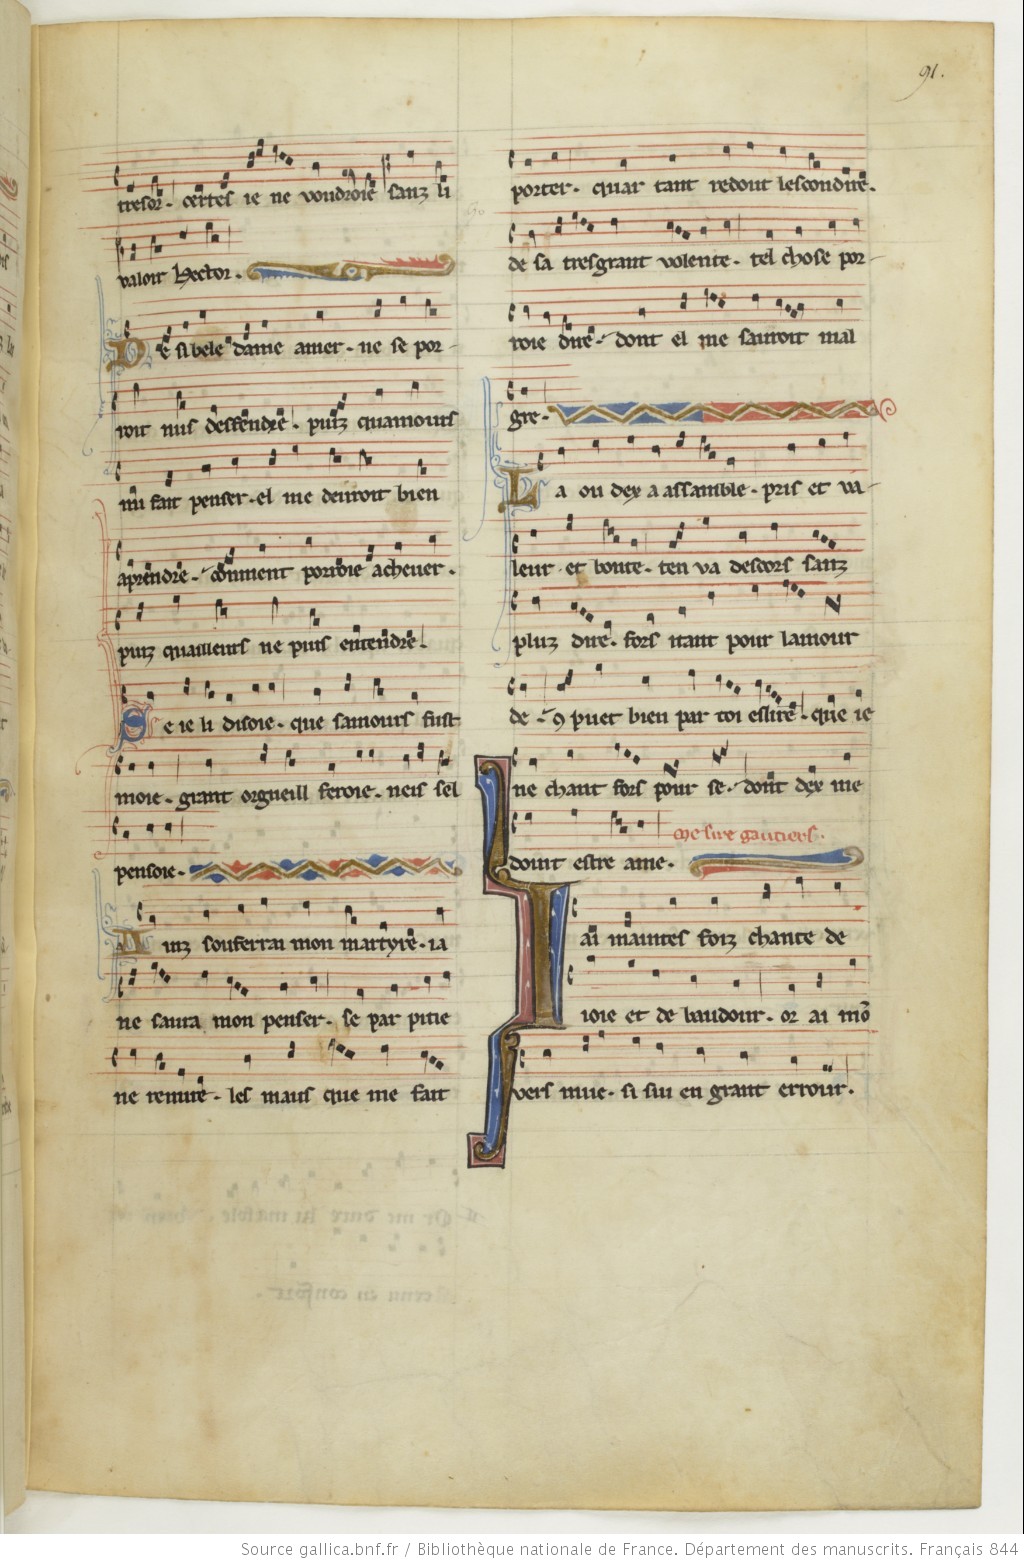 91.
tresor. certes ie ne voudroie sanz li
valoir hector.
De si bele dame amer. ne se por-
roit nus deffendre. puiz quamours
mi fait penser. el me deuroit bien
aprendre. comment porroie acheuer.
puiz quailleurs ne puis entendre.
Se ie li disoie. que samours fust
moie. grant orgueill feroie. neis sel
pensoie.
Ainz souferrai mon martyre. ia
ne saura mon penser. se par pitie
ne remire. les maus que me fait
porter. quar tant redout lescondire.
de sa tresgrant volente. tel chose por-
roie dire. dont el me sauroit mal
gre.
La ou dex a assamble. pris et va-
leur et bonte. ten va descors sanz
pluz dire. fors itant pour lamour
de. 9 puet bien par toi eslire. que ie
ne chant fors pour se. dont dex me
doint estre ame.
Me sire gautiers.
Iai maintes foiz chante de
ioie et de baudour. or ai mõ
vers mue. si sui en grant errour.
Source gallica.bnf.fr / Bibliothèque nationale de France. Département des manuscrits. Français 844